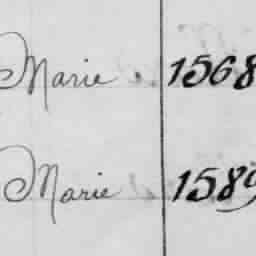 Marie 1568
Marie 1589